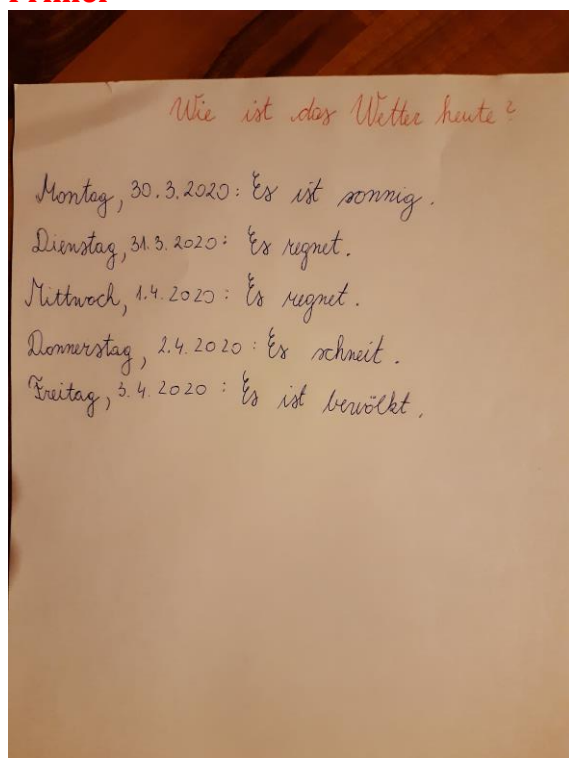 Wie ist das Wetter heute?
Montag, 30.3.2020: Es ist sonnig.
Dienstag, 31.3.2020: Es regnet.
Mittwoch, 1.4.2020: Es regnet.
Donnerstag, 2.4.2020: Es schneit.
Freitag, 3.4.2020: Es ist bewölkt.